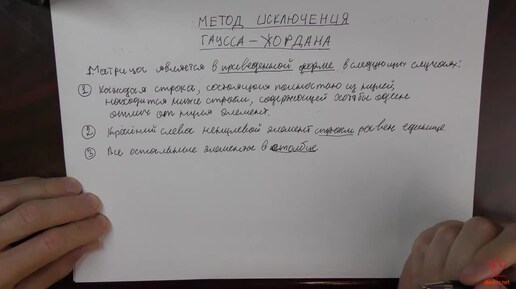 МЕТОД ИСКЛЮЧЕНИЯ
ГАУССА – ЖОРДАНА
Матрица является в приведенной форме в следующих случаях:
① Каждая строка, состоящая полностью из нулей,
находится ниже строки, содержащей хотя бы один
отличн от нуля элемент.
② Крайний слева ненулевой элемент строки равен единице
③ Все остальные элементы в столбце